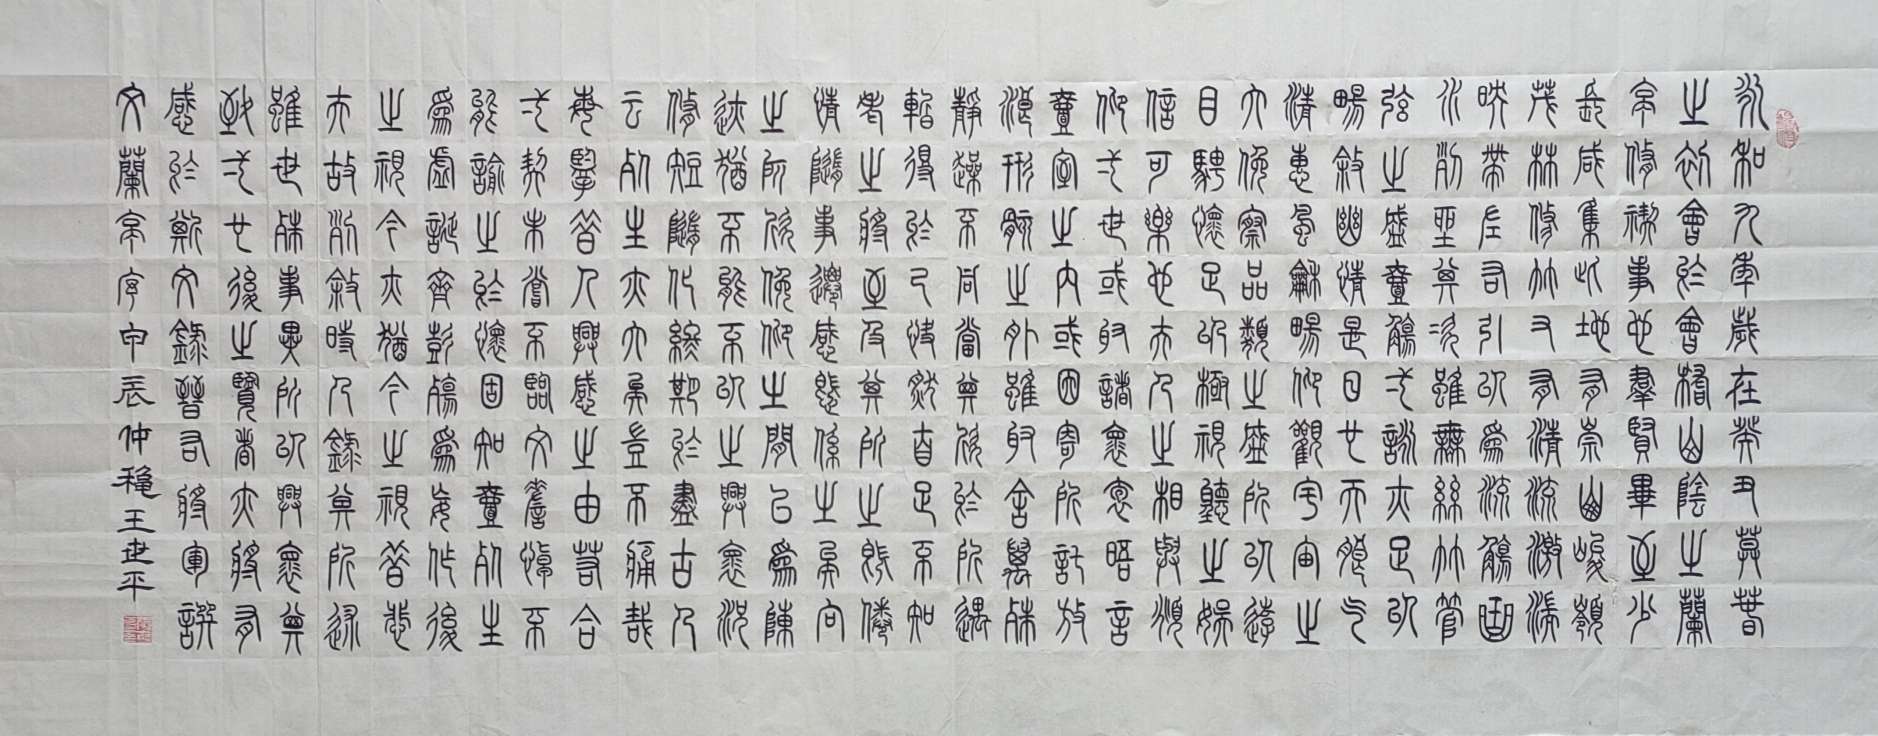 永和九年歲在癸丑莫春
之初會於會稽山陰之蘭
亭修禊事也群賢畢至少
長咸集此地有崇山峻領
茂林修竹又有清流激湍
映帶左右引以為流觴曲
水列坐其次雖無絲竹管
弦之盛壹觴弌詠亦足以
暢敘幽情是日也天朗气
清惠風龢暢仰觀宇宙之
大俛察品類之盛所以遊
目騁懷足以極視聽之娛
信可樂也夫人之相與頫
仰弌世或取諸褱袌晤言
壹室之內或因寄所託放
浪形骸之外雖取舍萬殊
靜躁不同當其欣於所遇
暫得於己快然自足不知
老之將至及其所之既倦
情隨事遷感慨係之矣向
之所欣俛仰之閒已為陳
跡猶不能不以之興褱況
修短隨化終期於盡古人
云死生亦大矣豈不痛哉
每覽昔人興感之由若合
弌契未嘗不臨文嗟悼不
能諭之於懷固知壹死生
為虛誕齊彭殤為妄作後
之視今亦猶今之視昔悲
夫故列敘時人錄其所述
雖世殊事異所以興褱其
致弌也後之覽者亦將有
感於斯文錄晉右將軍譔
文蘭亭序甲辰仲穐王世平